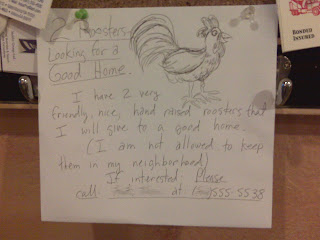 Roosters
Looking for a
Good Home.
I have 2 very
friendly, nice, hand raised roosters that
I will give to a good home.
(I am not allowed to keep
them in my neighborhood)
If interested, Please
call at 555-5538
BONDED
INSURED